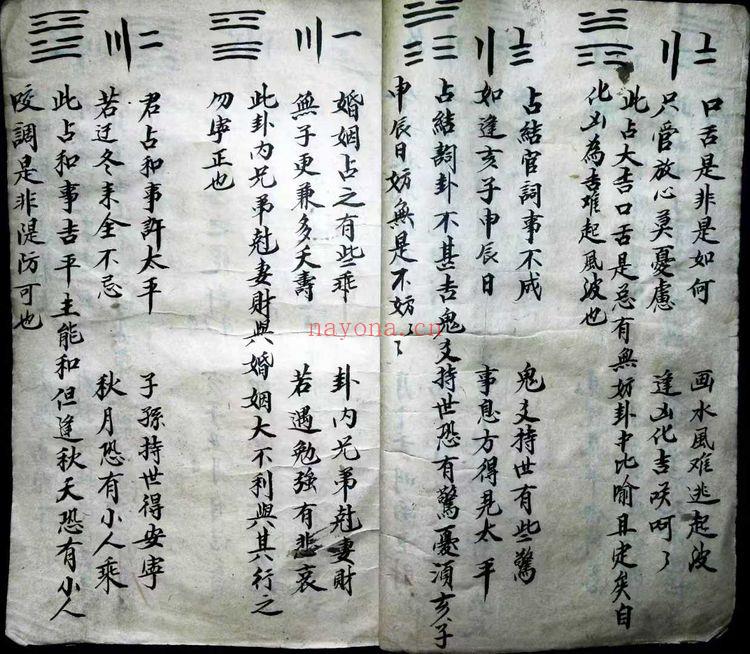 口舌是非是如何 画水风难逃起波
只管放心莫憂慮 逢凶化吉咲呵了
此占大吉口舌是忌有無妨卦中比喻且定矣自
化凶為吉难起風波也
占結官詞事不成 鬼爻持世有些驚
如逢亥子申辰日 事息方得見太平
占結詞卦不甚吉鬼爻持世恐有驚憂湏亥子
申辰日妨無是不妨了
一
婚姻占之有些乖 卦内兄弟尅妻財
無子更兼多夭壽 若遇勉強有悲哀
此卦内兄弟尅妻財與婚姻大不利與其行之
勿寧正也
二
君占和事許太平 子孫持世得安寧
若迋冬来全不忌 秋月恐有小人乘
此占和事吉平主能和但逢秋天恐有小人
咬調是非隄防可也
nayona.cn